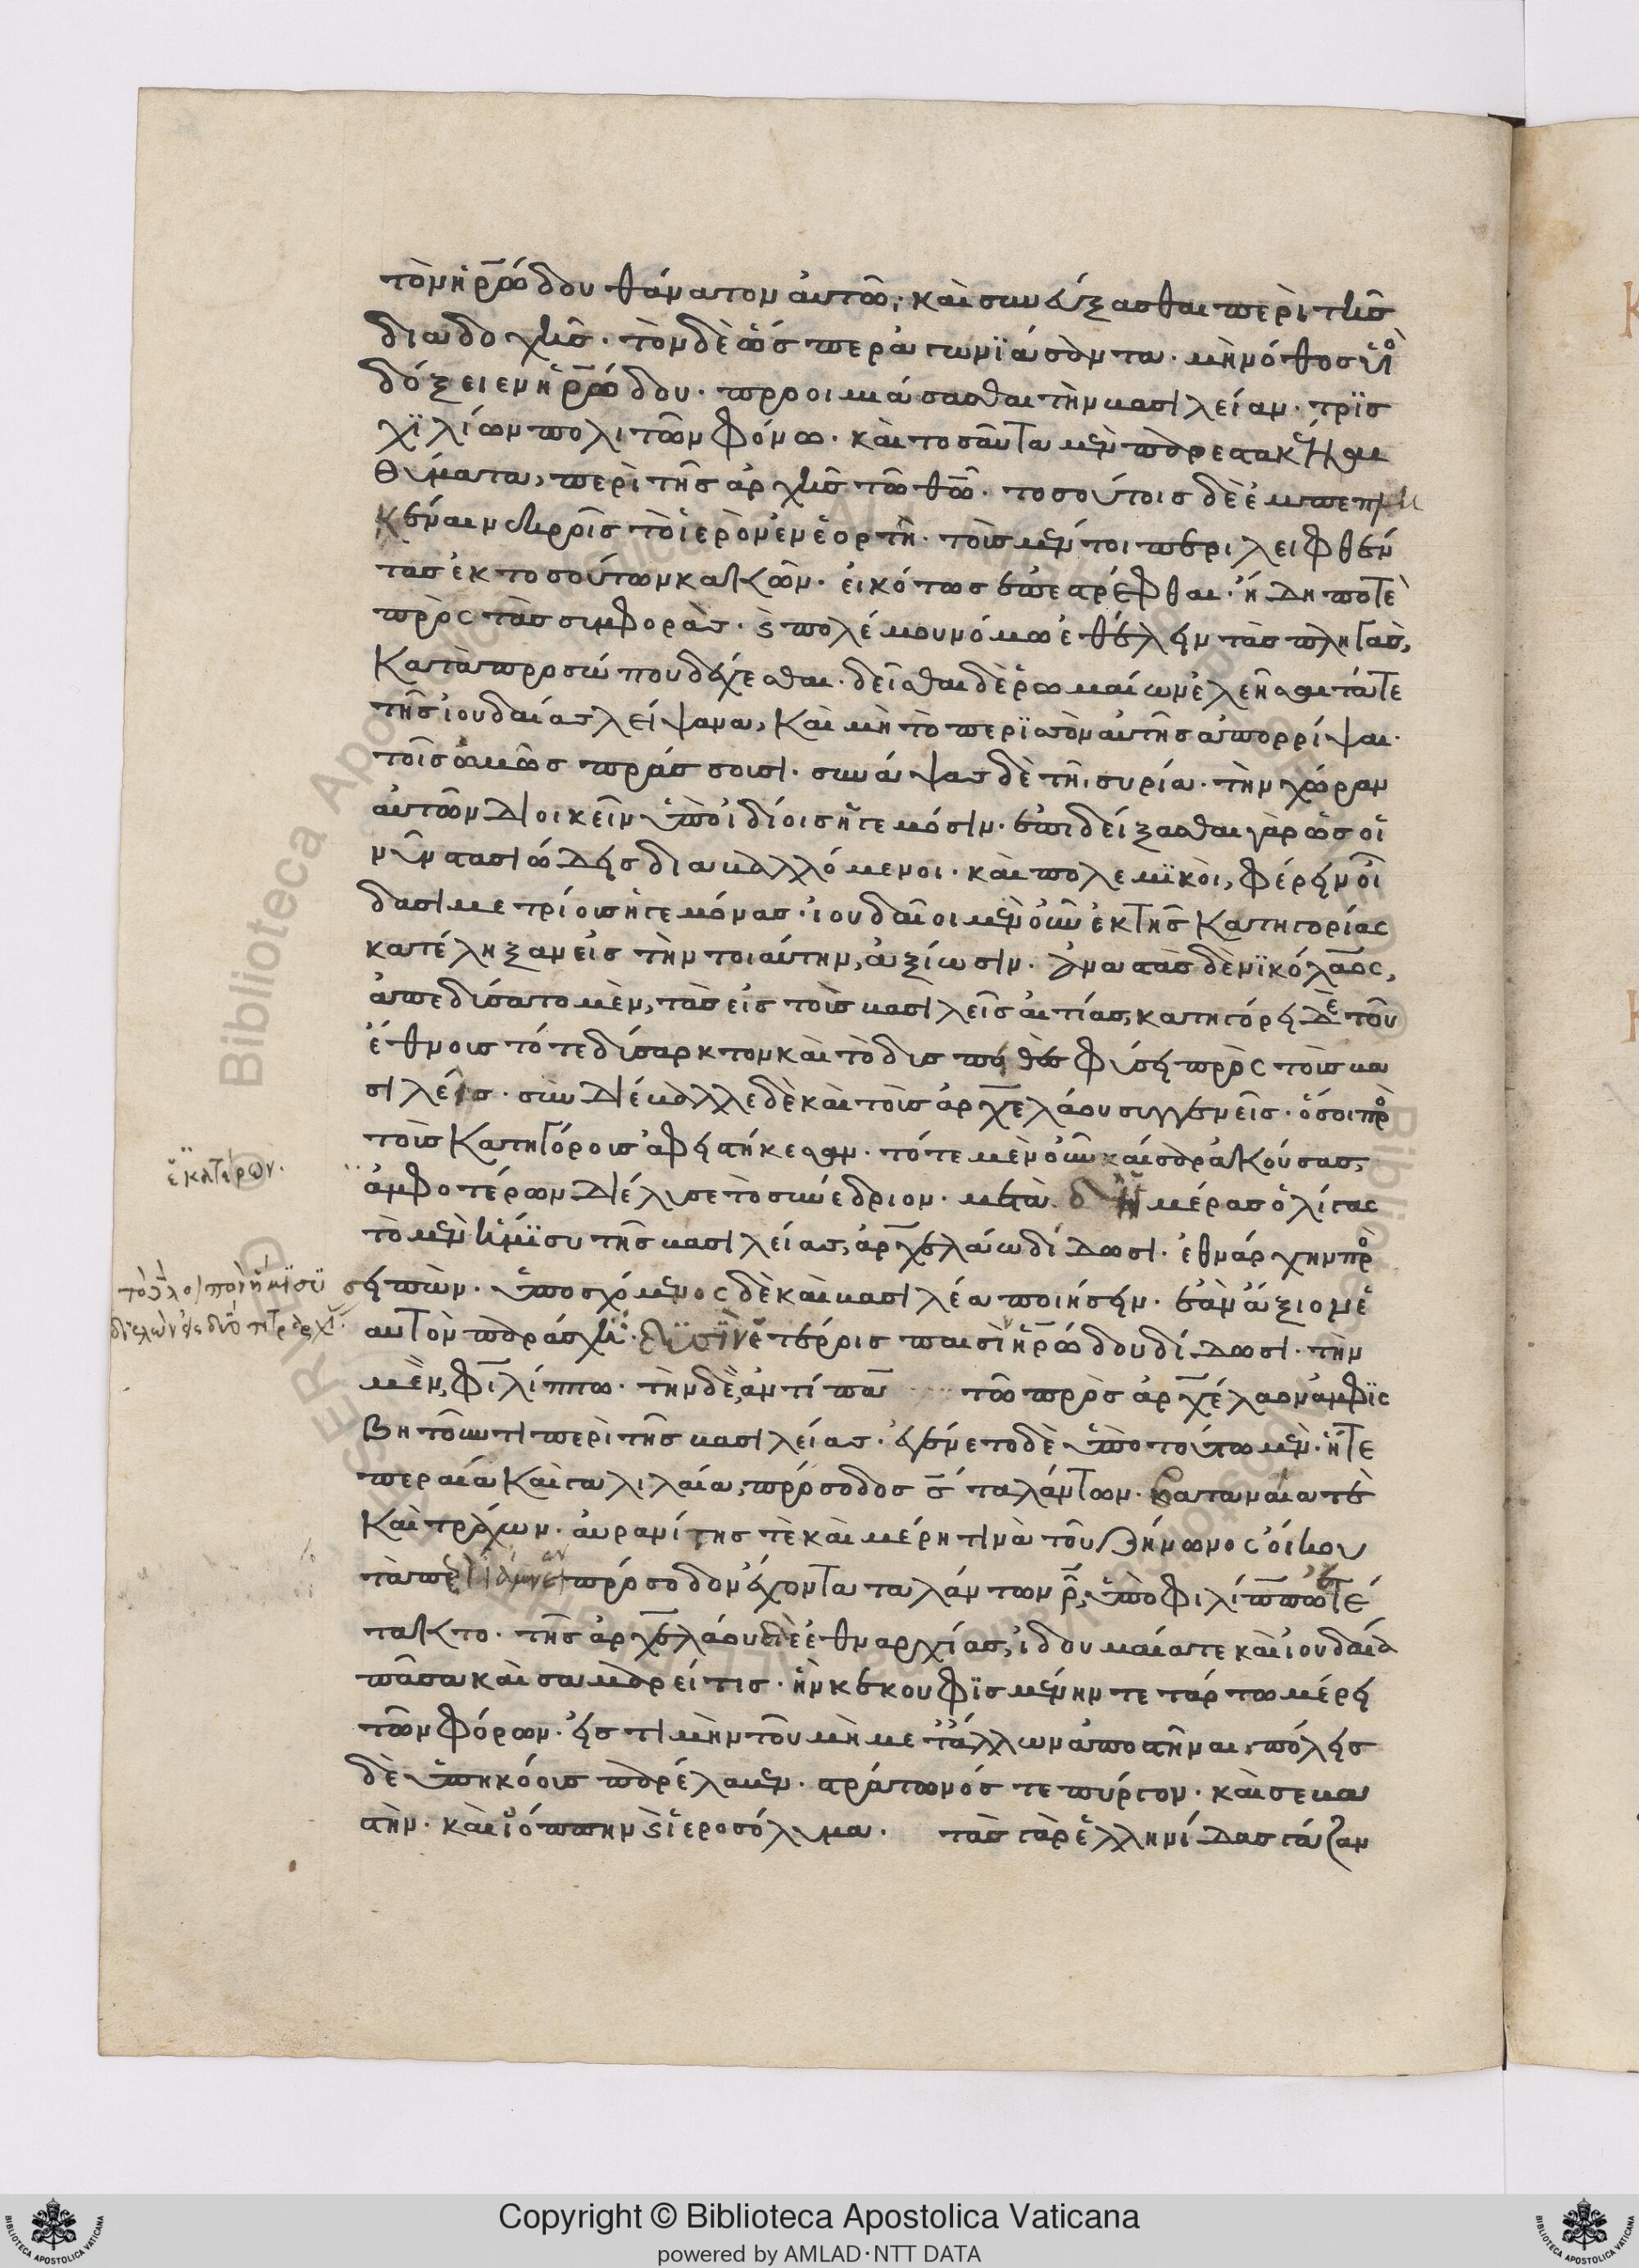 τὸν ἡρώδου θάνατον αὐτῶ, καὶ συνεύξασθαι περὶ τῆς
διαδοχῆς. τὸν δὲ ὥσπερ ἀγωνιάσαντα. μὴ νόθος υἱὸ
δόξειεν ἡρώδου. προοιμιάσασθαι τὴν βασιλείαν. τρϊσ
χϊλίων πολιτῶν φόνω. καὶ τοσαῦτα μὲν παρεστακέναι
θύματα, περὶ τῆς ἀρχῆς τῶ θῶ. τοσούτοις δὲ ἐμπεπλη
κέναι νεκροῖς τὸ ἱερὸν ἐν ἑορτῆ. τοὺς μέντοι περιλειφθέν
τας ἐκ τοσούτων κακῶν. εἰκότως ἐπεστράφθαι ἤδη ποτὲ
πρὸς τὰς συμφορὰς. ϗ πολέμου νόμω ἐθέλειν τὰς πληγὰς,
κατὰ προσώπου δέχεσθαι. δεῖσθαι δὲ ῥωμαίων ἐλεῆσαι τάτε
τῆς ἰουδαίας λείψανα, καὶ μὴ τὸ περϊσσὸν αὐτῆς ἀπορρίψαι.
τοῖς ὠμῶς πράσσουσι. συνάψας δὲ τῆ συρία. τὴν χώραν
αὐτῶν διοικεῖν ὑπ᾽ ἰδίοις ἡγεμόσιν. ἐπιδείξασθαι γὰρ ὡς οἱ
νῦν στασιώδεις διαβαλλόμενοι. καὶ πολεμϊκοὶ, φέρειν οἴ
δασι μετρίους ἡγεμόνας. ἰουδαῖοι μὲν οὖν ἐκ τῆς κατηγορίας
κατέληξαν εἰς τὴν τοιαύτην, ἀξίωσιν. ἀναστὰς δὲ νϊκόλαος,
ἀπεδύσατο μὲν, τὰς εἰς τοὺς βασιλεῖς αἰτίας, κατηγόρει δὲ τοῦ
ἔθνους τό τε δύσαρκτον καὶ τὸ δυσπειθὲς φύσει πρὸς τοὺς βα
σιλεῖς. συνδιέβαλλε δὲ καὶ τοὺς ἀρχελάου συγγενεῖς. ὅσοι πρὸ
τοὺς κατηγόρους ἀφειστήκεσαν. τότε μὲν οὖν καίσαρ ἀκούσας,
ἑκατέρων.
ἀμφοτέρων διέλυσε τὸ συνέδριον. μετὰ δ᾽ ἡμέρας ὀλίγας
τὸ μὲν ἥμϊσυ τῆς βασιλείας, ἀρχελάω δίδωσι. ἐθνάρχην προ
σειπὼν. ὑποσχόμενος δὲ καὶ βασιλέα ποιήσειν. ἐὰν ἄξιον ἑ
αυτὸν παράσχη. δυσὶν ἑτέροις παισὶν ἡρώδου δίδωσι. τὴν
μὲν, φιλίππω. τὴν δὲ, ἀντίπα τῶ πρὸς ἀρχέλαον ἀμφϊσ
βητοῦντι περὶ τῆς βασιλείας. ἐγένετο δὲ ὑπὸ τούτω μὲν. ἥτε
περαία καὶ γαλιλαία, πρόσοδος σ̅ ταλάντων. βαταναία τὲ
καὶ τράχων. αὐρανίτης τὲ καὶ μέρη τινὰ τοῦ ζήνωνος οἴκου
πρόσοδον ἔχοντα ταλάντων ρ̅, ὑπὸ φιλίππω ἐτέ
τακτο. τῆς ἀρχελάου δὲ ἐθναρχίας, ἰδουμαία τε καὶ ἰουδαία
πᾶσα καὶ σαμάρείτις. ἦν κεκουφϊσμένην τετάρτω μέρει
τῶν φόρων. εἰς τιμὴν τοῦ μὴ μετ᾽ ἄλλων ἀποστῆναι, πόλεις
δὲ ὑπηκόους παρέλαβεν. στράτωνός τε πύργον. καὶ σεβα
στὴν. καὶ ἰόππην ϗ ἱεροσόλυμα. τὰς γὰρ ἑλληνίδας γάζαν